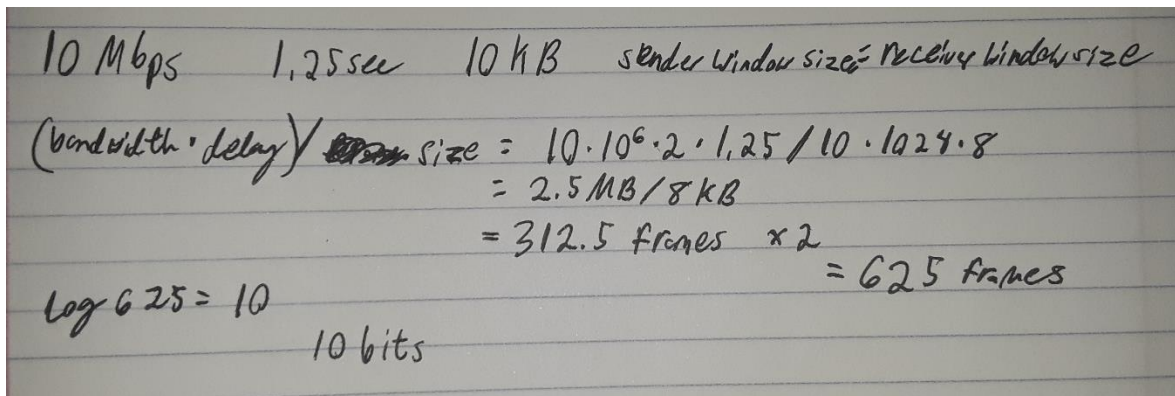 10 Mbps 1.25 sec 10 KB sender window size = receiver window size
(bandwidth · delay) / size = 10 · 10⁶ · 2 · 1.25 / 10 · 1024 · 8
= 2.5 MB / 8 KB
= 312.5 frames × 2
= 625 frames
log 625 = 10
10 bits